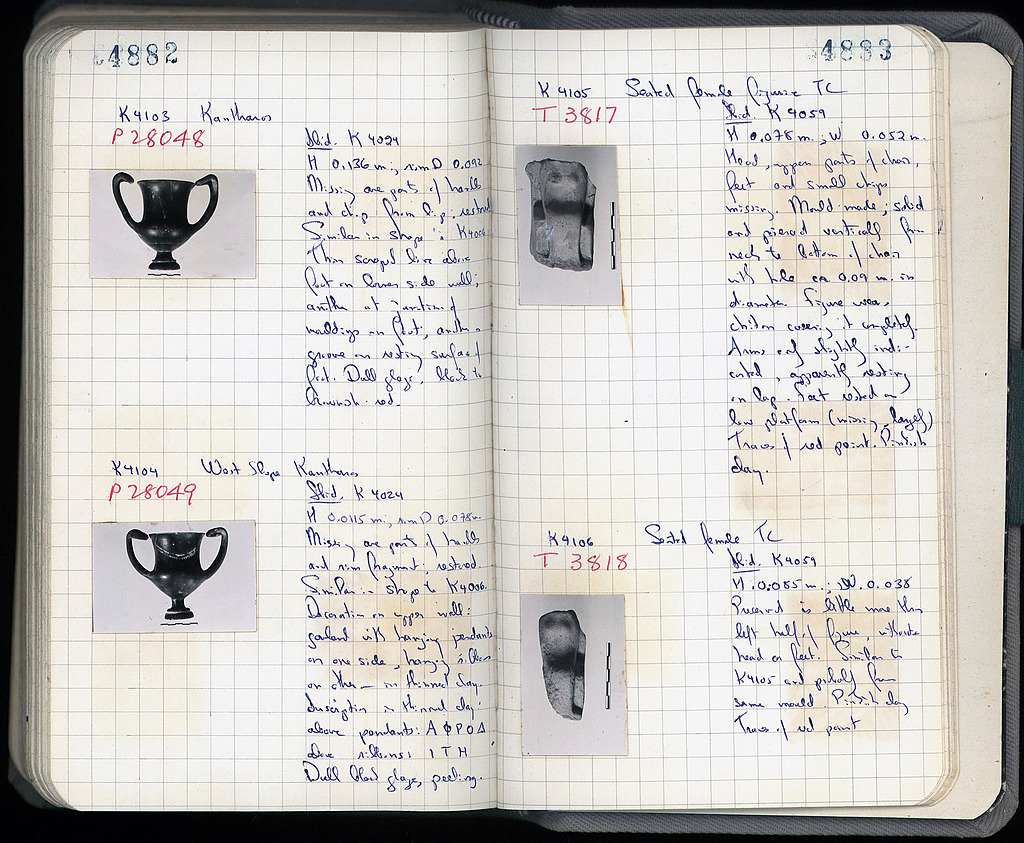 4882
K4103 Kantharos
P 28048
Ibid. K 4024
H 0.136 m; rim D 0.092
Missing are parts of handles
and chip from lip; restored
Similar in shape to K4006.
Thin scraped line above
foot on lower side wall;
another at junction of
mouldings on foot; another
groove on resting surface of
foot. Dull glaze, black to
brownish-red.
K4104 West Slope Kantharos
P 28049
Ibid. K 4024
H 0.0115 m; rim D 0.078m.
Missing are parts of handles
and rim fragment; restored.
Similar in shape to K4006.
Decoration on upper wall:
garland with hanging pendants
on one side, hanging ribbons
on other — in thinned clay.
Inscription in thinned clay:
above pendants: ΑΦΡΟΔ
above ribbons: ΙΤΗ
Dull black glaze, peeling.
4883
K 4105 Seated female figurine TC
T 3817
Ibid. K 4059
H 0.078 m.; W 0.052 m.
Head, upper parts of chair,
feet and small chips
missing. Mould made; solid
and pierced vertically from
neck to bottom of chair
with hole ca 0.09 m. in
diameter. Figure wears
chiton covering it completely.
Arms only slightly indi-
cated, apparently resting
on lap. Feet rested on
low platform (missing largely)
Traces of red paint. Pinkish
clay.
K4106 Seated female TC
T 3818
Ibid. K4059
H. 0.085 m.; W. 0.038
Preserved is little more than
left half of figure, without
head or feet. Similar to
K4105 and probably from
same mould. Pinkish clay
Traces of red paint